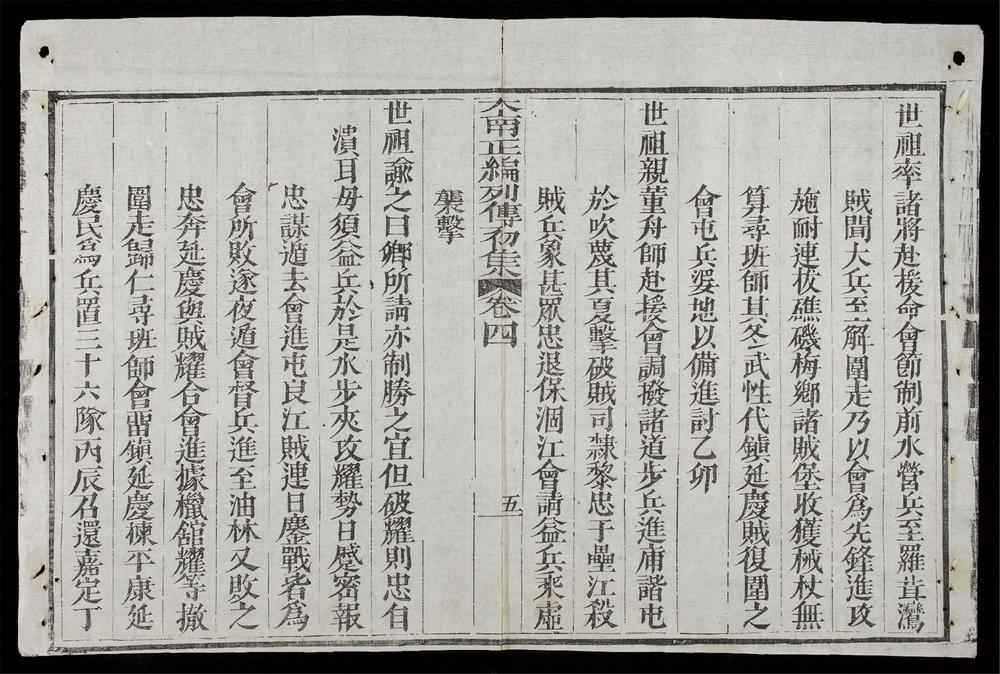 世祖率諸將赴援命會節制前水營兵至羅苴灣
賊聞大兵至解圍走乃以會爲先鋒進攻
施耐連拔礁磯梅鄉諸賊堡收獲械杖無
算尋班師其冬武性代鎭延慶賊復圍之
會屯兵婆地以備進討乙卯
世祖親董舟師赴援會調撥諸道步兵進甫諧屯
於吹蔑其夏擊破賊司隸黎忠于壘江殺
賊兵象甚眾忠退保涸江會請益兵乘虛
襲擊
大南正編列傳初集 卷四 五
世祖諭之曰卿所請亦制勝之宜但破耀則忠自
潰耳毋須益兵於是水步夾攻耀勢日蹙密報
忠謀遁去會進屯良江賊連日鏖戰皆爲
會所敗遂夜遁會督兵進至油林又敗之
忠奔延慶與賊耀合會進據欖館耀等撤
圍走歸仁尋班師會留鎭延慶楝平康延
慶民爲兵置三十六隊丙辰召還嘉定丁